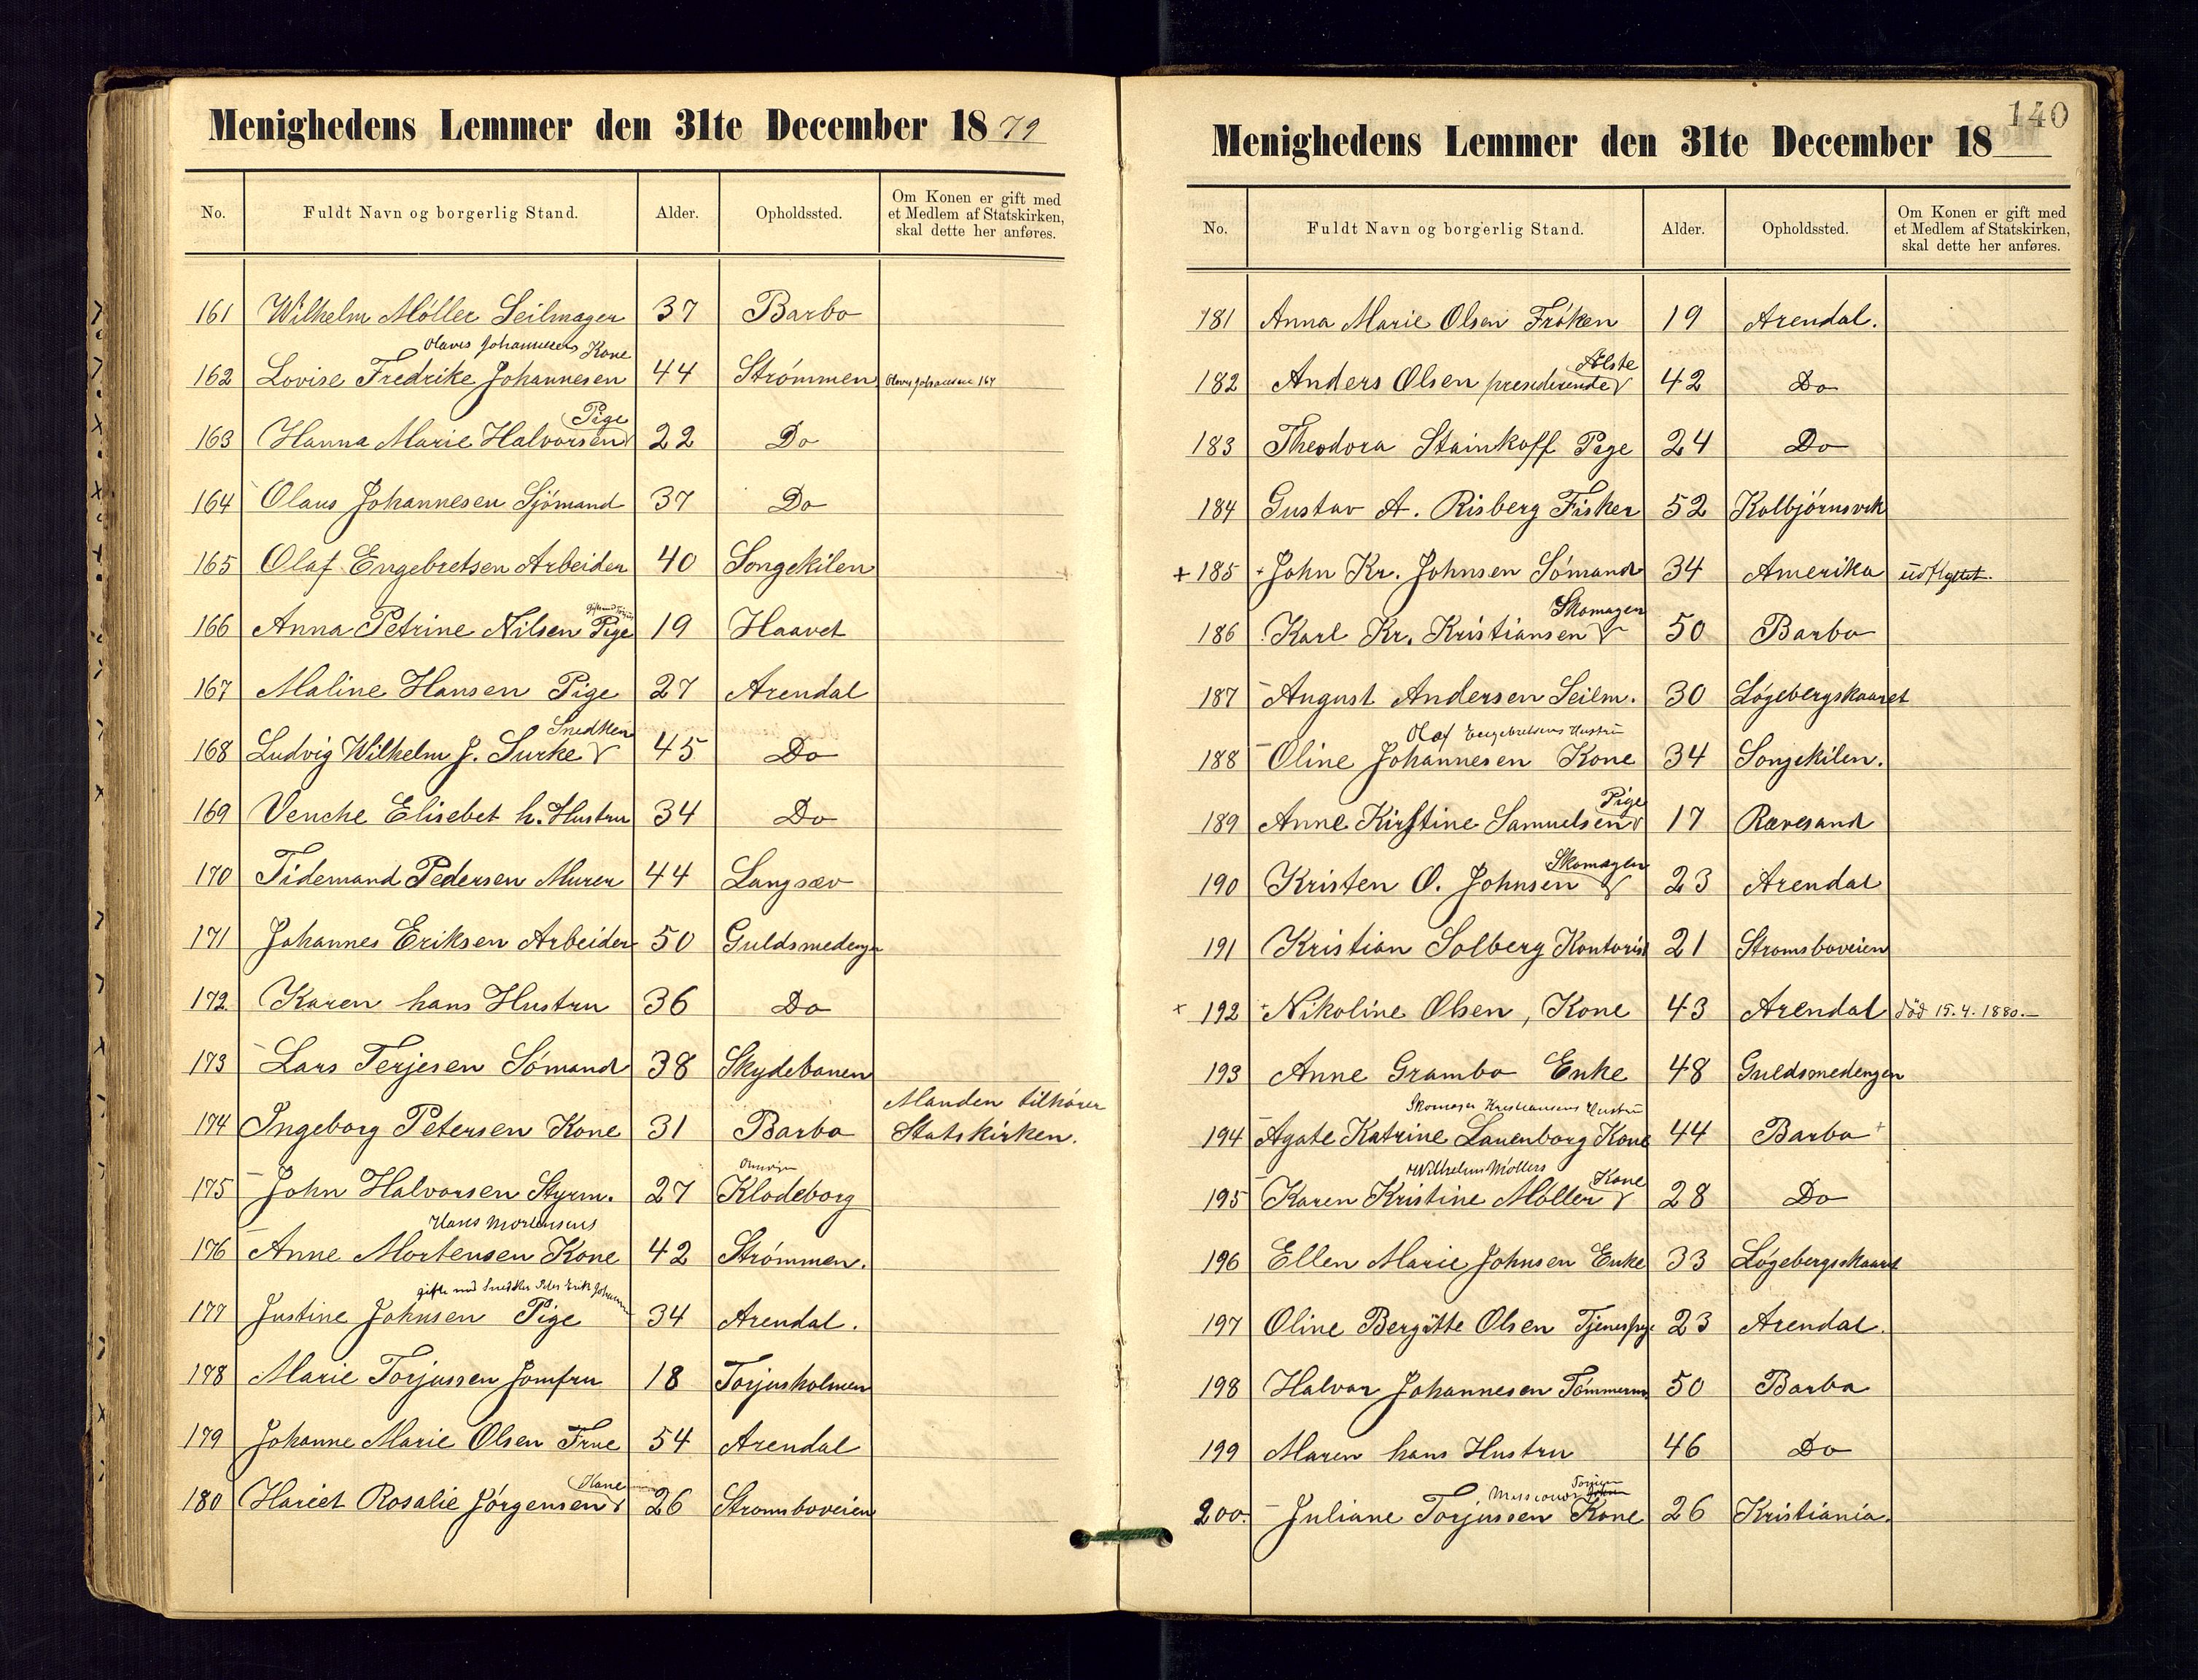 Menighedens Lemmer den 31te December 1879
No. Fuldt Navn og borgerlig Stand. Alder. Opholdssted. Om Konen er gift med et Medlem af Statskirken, skal dette her anføres.
161 Wilhelm Møller Seilmager 37 Barbo
Olaves Johannesens Kone
162 Lovise Fredrike Johannesen 44 Strömmen Olaves Johannesen 164
Pige
163 Hanna Marie Halvorsen 22 Do
164 Olaus Johannesen Sjömand 37 Do
165 Olaf Engebretsen Arbeider 40 Songekilen
166 Anna Petrine Nilsen Pige 19 Haavet
167 Maline Hansen Pige 27 Arendal
Snedker
168 Ludvig Wilhelm J. Surke 45 Do
169 Venche Elisebet h. Hustru 34 Do
170 Tidemand Pedersen Murer 44 Langsæv
171 Johannes Eriksen Arbeider 50 Guldsmedengn
172. Karen hans Hustru 36 Do
173 Lars Terjesen Sömand 38 Skydebanen
Manden tilhører
174 Ingeborg Petersen Kone 31 Barbo Statskirken.
175 John Halvorsen Styrm. 27 Klodeborg
Hans Mortensens
176 Anne Mortensen Kone 42 Strömmen.
gifte med Snedker Peter Erik Johannsen
177 Justine Johnsen Pige 34 Arendal.
178 Marie Torjussen Jomfru 18 Torjusholmen
179 Johanne Marie Olsen Frue 54 Arendal
Kone
180 Hariet Rosalie Jörgensen 26 Stromsboveien
140
Menighedens Lemmer den 31te December 18
No. Fuldt Navn og borgerlig Stand. Alder. Opholdssted. Om Konen er gift med et Medlem af Statskirken, skal dette her anføres.
181 Anna Marie Olsen Fröken 19 Arendal.
Ælste
182 Anders Olsen presederende 42 Do
183 Theodora Stainkoff Pige 24 Do
184 Gustav A. Risberg Fisker 52 Kolbjörnsvik
+ 185 + John Kr. Johnsen Sömand 34 Amerika udflyttet.
Skomager
186 Karl Kr. Kristiansen 50 Barbo
187 August Andersen Seilm. 30 Lögebergskaaret
Olaf Engebretsens Hustru
188 Oline Johannesen Kone 34 Songekilen.
Pige
189 Anne Kirstine Samuelsen 17 Rævesand
Skomager
190 Kristen O. Johnsen 23 Arendal
191 Kristian Solberg Kontorist 21 Stromsboveien
x 192 + Nikoline Olsen, Kone 43 Arendal död 15.4.1880.
193 Anne Grambo Enke 48 Guldsmedengen
Skomager Kristiansens Hustru
194 Agate Katrine Lauenborg Kone 44 Barbo +
Wilhelm Møllers Kone
195 Karen Kristine Möller 28 Do
196 Ellen Marie Johnsen Enke 33 Lögebergsskaaret
197 Oline Bergitte Olsen Tjenespige 23 Arendal.
198 Halvor Johannesen Tömmerm. 50 Barbo
199 Maren hans Hustru 46 Do
200. Juliane Torjussen Kone 26 Kristiania.